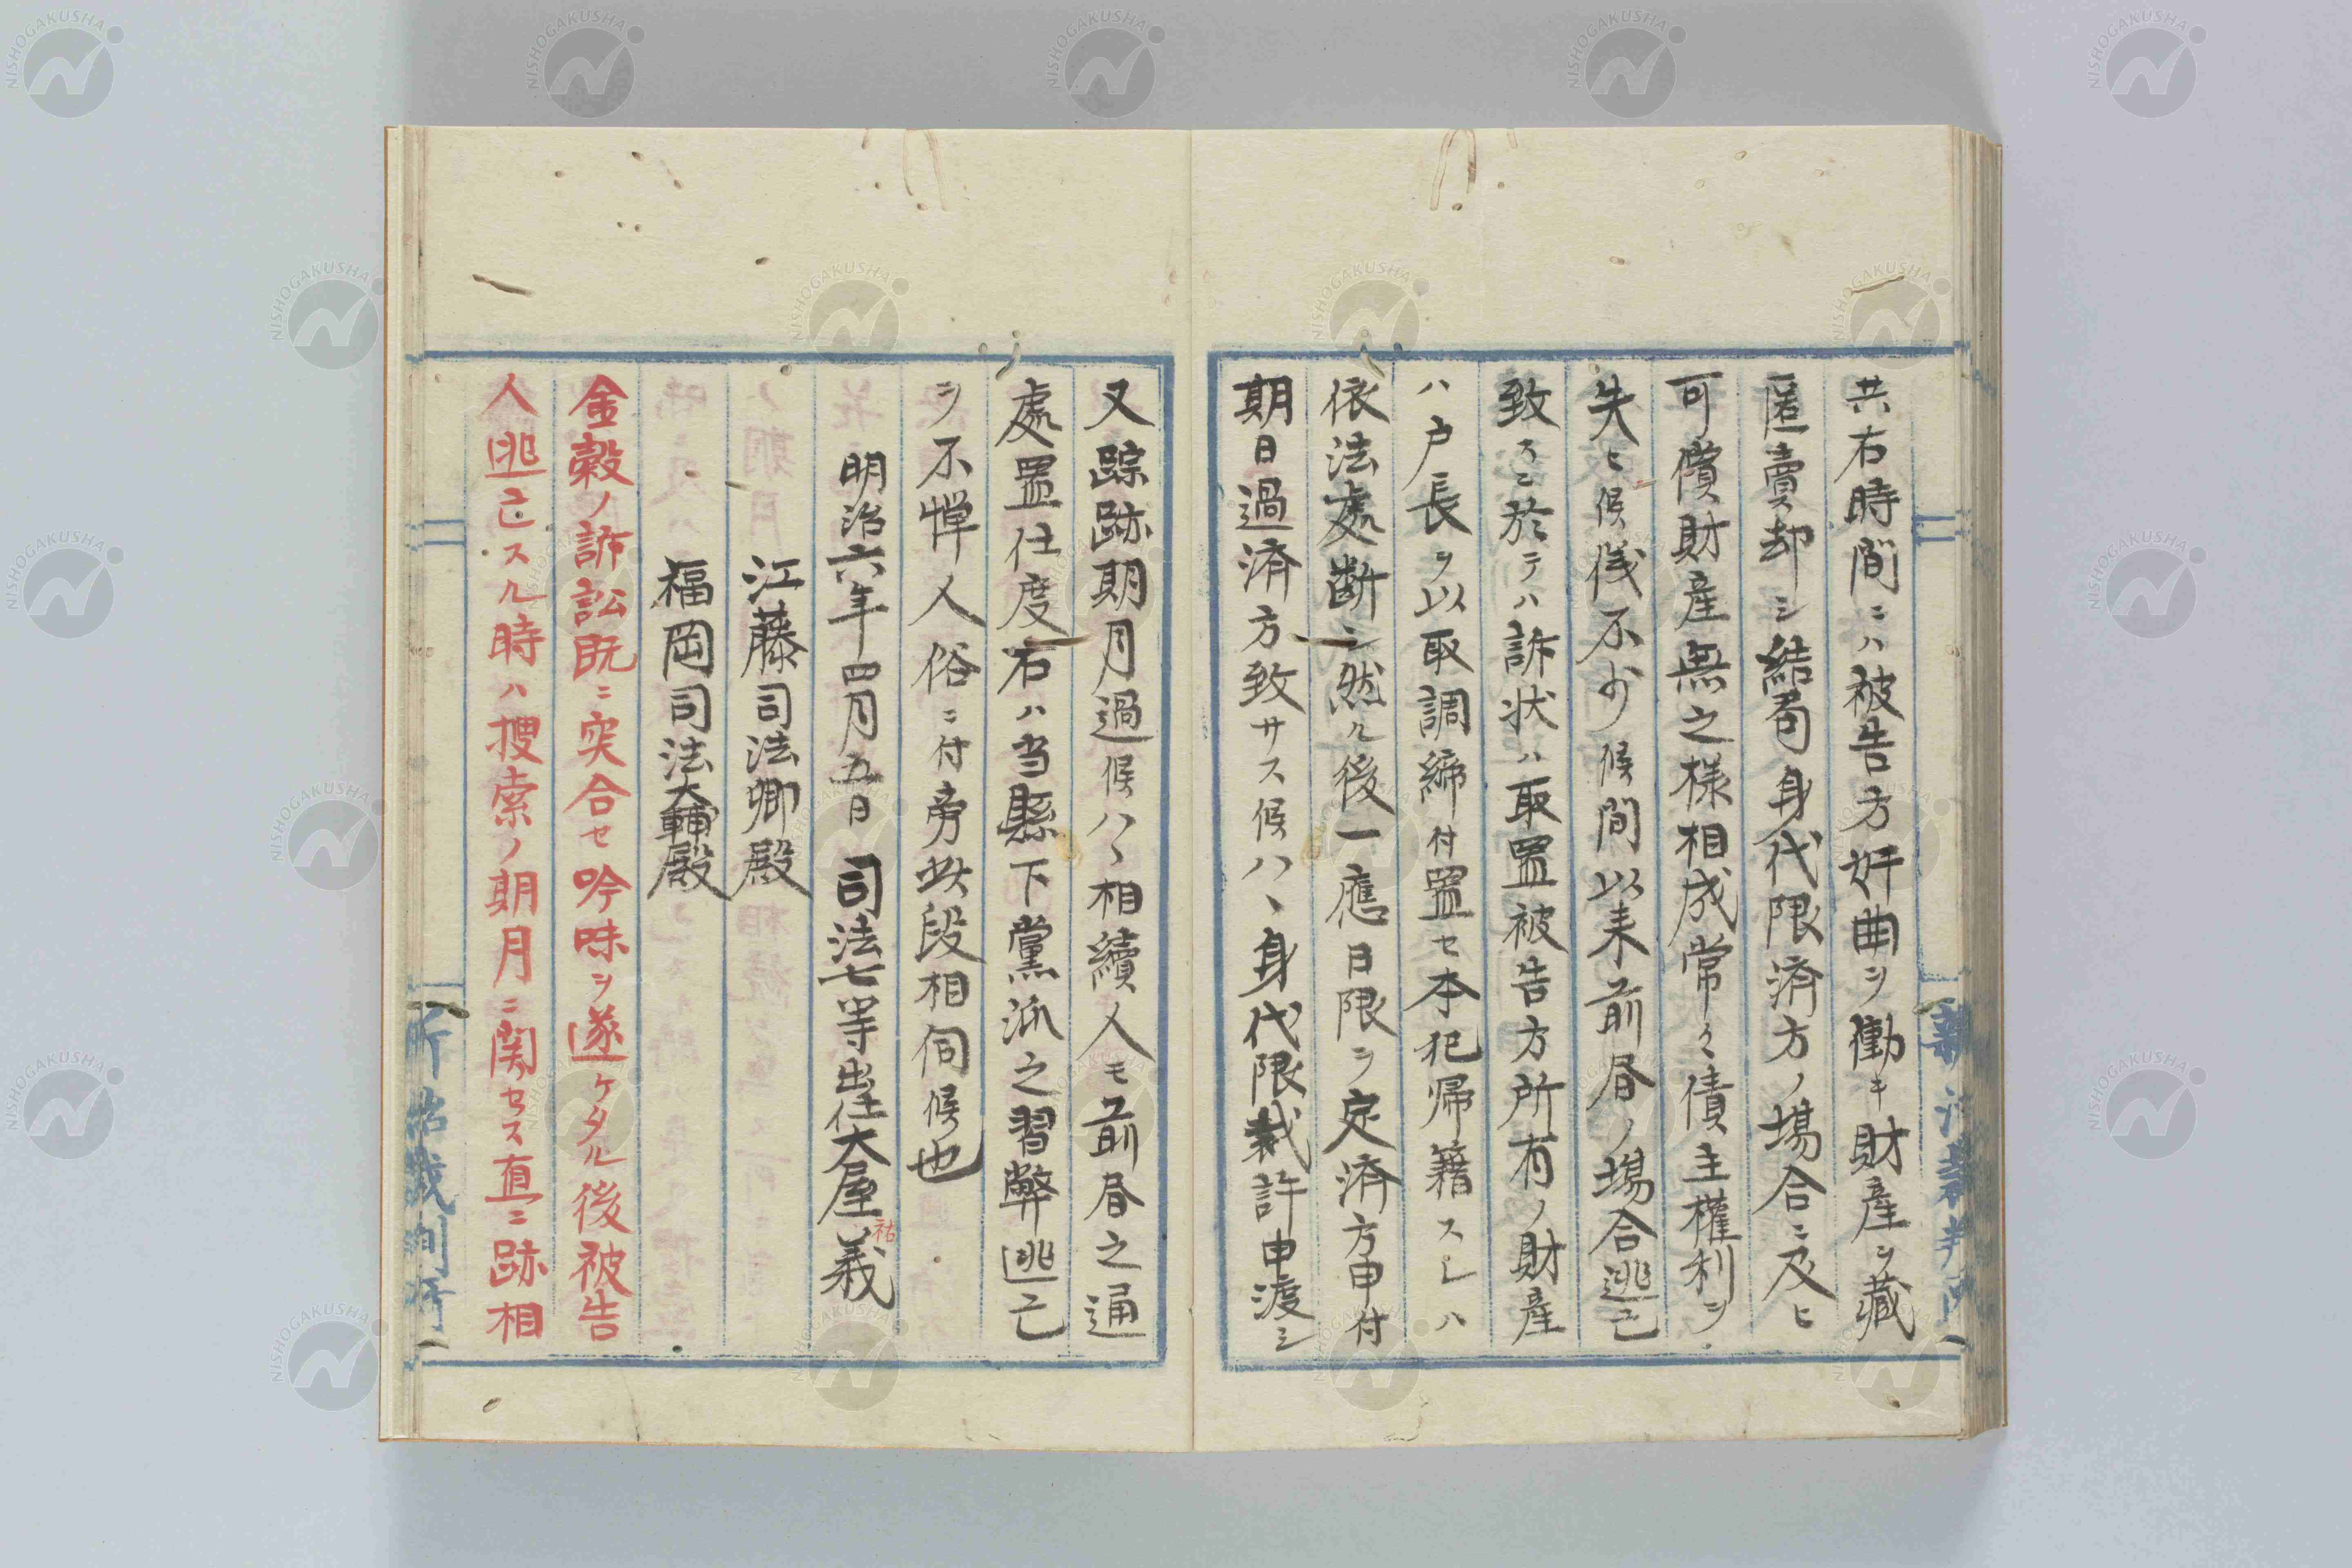 共右時間ニハ被告方奸曲ヲ働キ財産ヲ藏
匿賣却シ結局身代限済方ノ場合ニ及ヒ
可償財産無之様相成常々債主權利ヲ
失ヒ候儀不少候間以来前眉ノ場合逃亡
致スニ於テハ訴状ハ取置被告方所有ノ財産
ハ戸長ヲ以取調締付置セ本犯帰籍スレハ
依法處断シ然ル後一應日限ヲ定済方申付
期日過済方致サス候ハヽ身代限裁許申渡シ
又踪跡期月過候ハヽ相續人モ前眉之通
處置仕度右ハ当縣下黨派之習弊逃亡
ヲ不憚人俗ニ付旁此段相伺候也
明治六年四月五日 司法七等出仕大屋祐義
江藤司法卿殿
福岡司法大輔殿
金穀ノ訴訟既ニ突合セ吟味ヲ遂ケタル後被告
人逃亡スル時ハ搜索ノ期月ニ関セス直ニ跡相
NISHOGAKUSHA